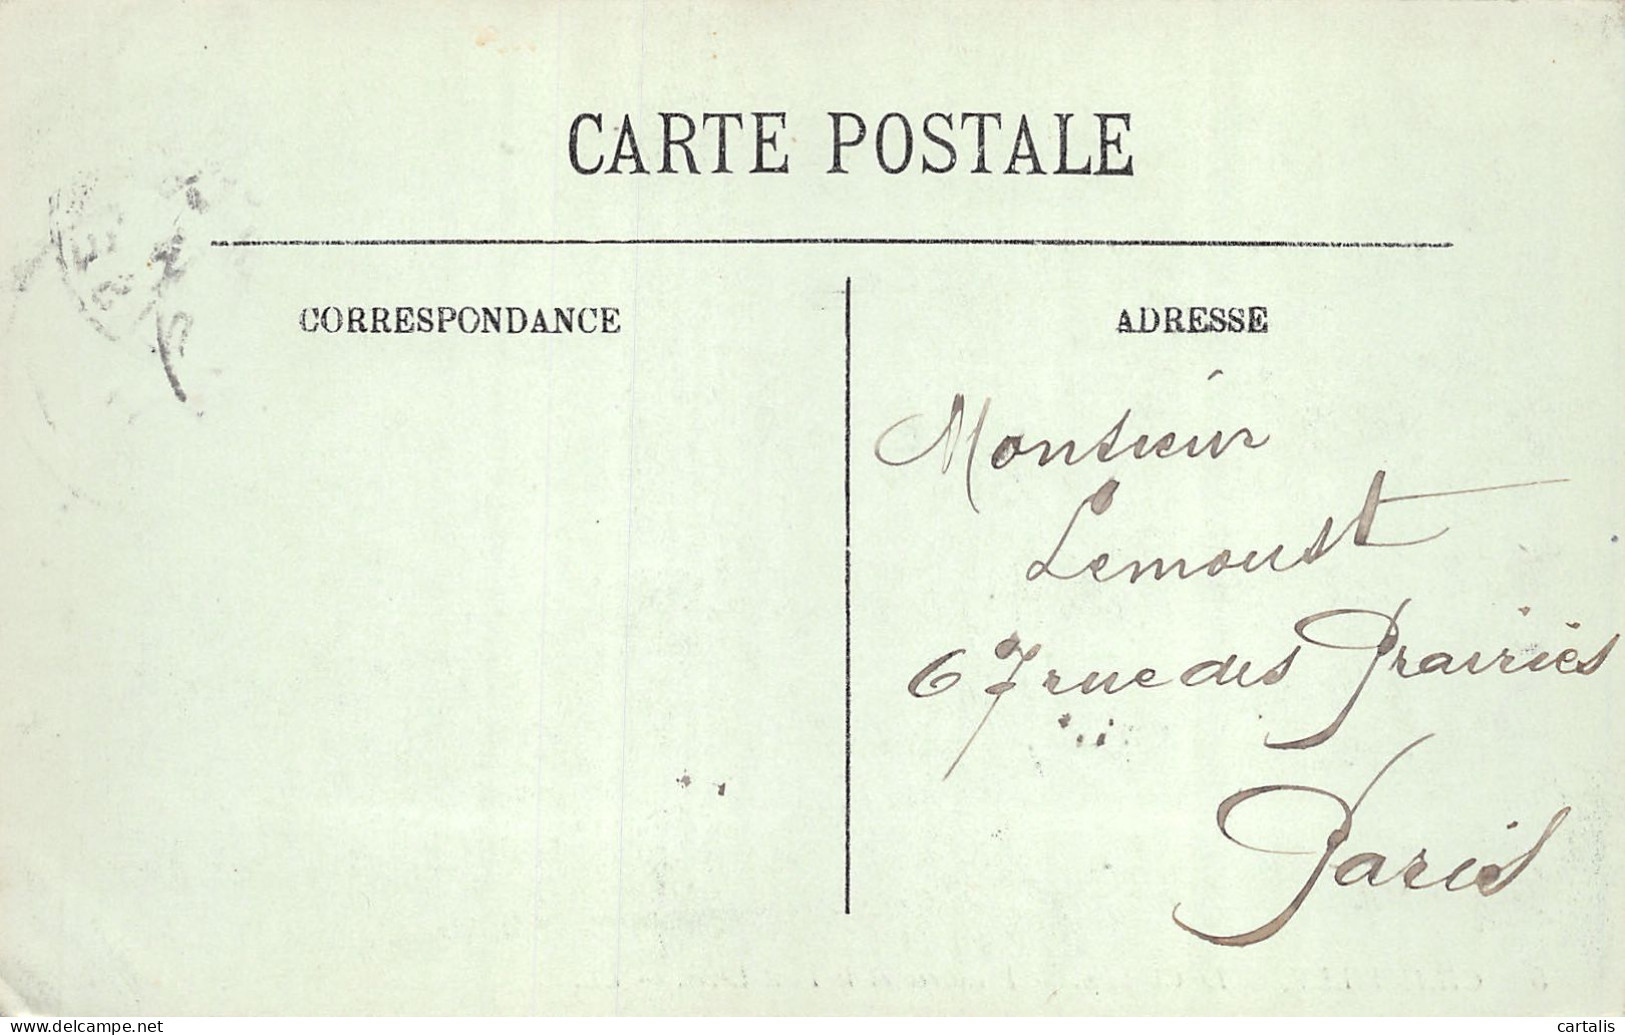 CARTE POSTALE
CORRESPONDANCE
ADRESSE
Monsieur
Lemoust
67 rue des Prairies
Paris
delcampe.net
cartalis